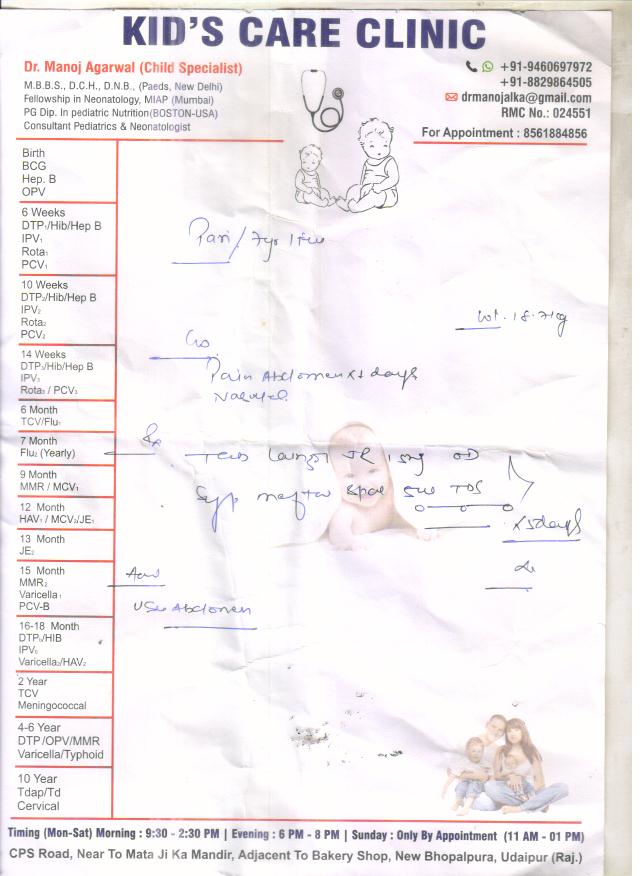 KID'S CARE CLINIC
Dr. Manoj Agarwal (Child Specialist)
M.B.B.S., D.C.H., D.N.B., (Paeds, New Delhi)
Fellowship in Neonatology, MIAP (Mumbai)
PG Dip. In pediatric Nutrition (BOSTON-USA)
Consultant Pediatrics & Neonatologist
+91-9460697972
+91-8829864505
drmanojalka@gmail.com
RMC No.: 024551
For Appointment : 8561884856
Birth
BCG
Hep. B
OPV
6 Weeks
DTP₁/Hib/Hep B
IPV₁
Rota₁
PCV₁
10 Weeks
DTP₂/Hib/Hep B
IPV₂
Rota₂
PCV₂
14 Weeks
DTP₃/Hib/Hep B
IPV₃
Rota₃ / PCV₃
6 Month
TCV/Flu₁
7 Month
Flu₂ (Yearly)
9 Month
MMR / MCV₁
12 Month
HAV₁ / MCV₂/JE₁
13 Month
JE₂
15 Month
MMR₂
Varicella₁
PCV-B
16-18 Month
DTP₅/HIB
IPV₅
Varicella₂/HAV₂
2 Year
TCV
Meningococcal
4-6 Year
DTP/OPV/MMR
Varicella/Typhoid
10 Year
Tdap/Td
Cervical
Pari / 7yr
Wt. 18.7kg
C/o
Pain Abdomen days
Rx
15mg OD
Syp meftal spas 5ml TDS
x 5days
Adv
USG Abdomen
Timing (Mon-Sat) Morning : 9:30 - 2:30 PM | Evening : 6 PM - 8 PM | Sunday : Only By Appointment (11 AM - 01 PM)
CPS Road, Near To Mata Ji Ka Mandir, Adjacent To Bakery Shop, New Bhopalpura, Udaipur (Raj.)